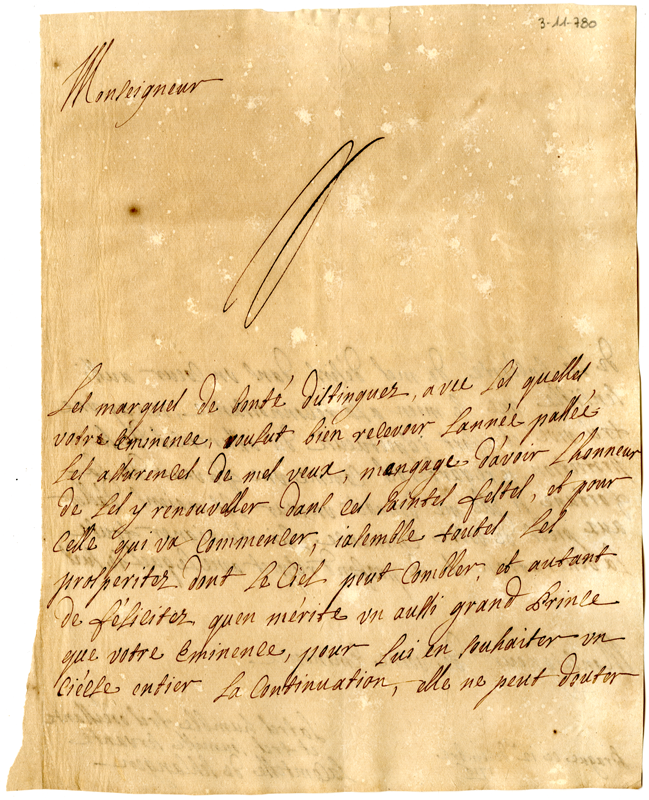 3-11-780
Monseigneur
Les marques de bonté distinguez, avec les quelles
votre Eminence, voulut bien récevoir, l'année passée
les assurences de mes veux, m'engage, d'avoir l'honneur
de les y renouveller dans ces saintes festes, et pour
celle qui va commencer, iasemble toutes les
prospéritez dont le Ciel peut combler, et autant
de félicitez qu'en mérite un aussi grand Prince
que votre Eminence, pour lui en souhaiter un
ciécle entier la Continuation, elle ne peut douter